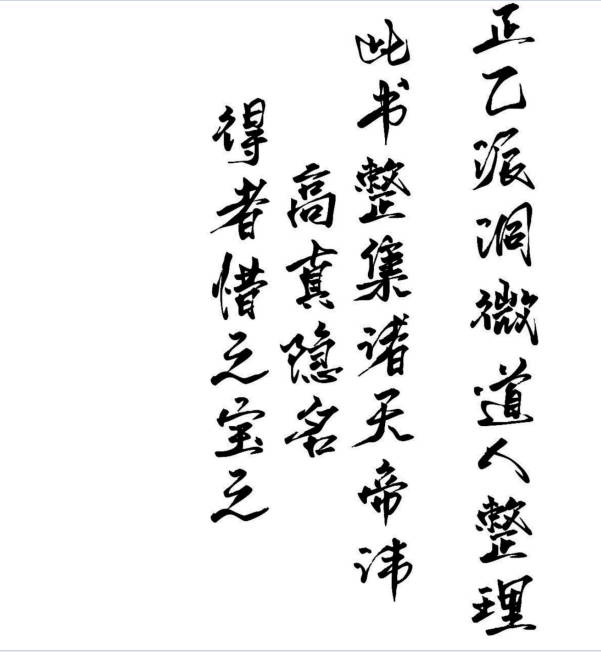 正乙派洞微道人整理
此书整集诸天帝讳
高真隐名
得者惜之宝之